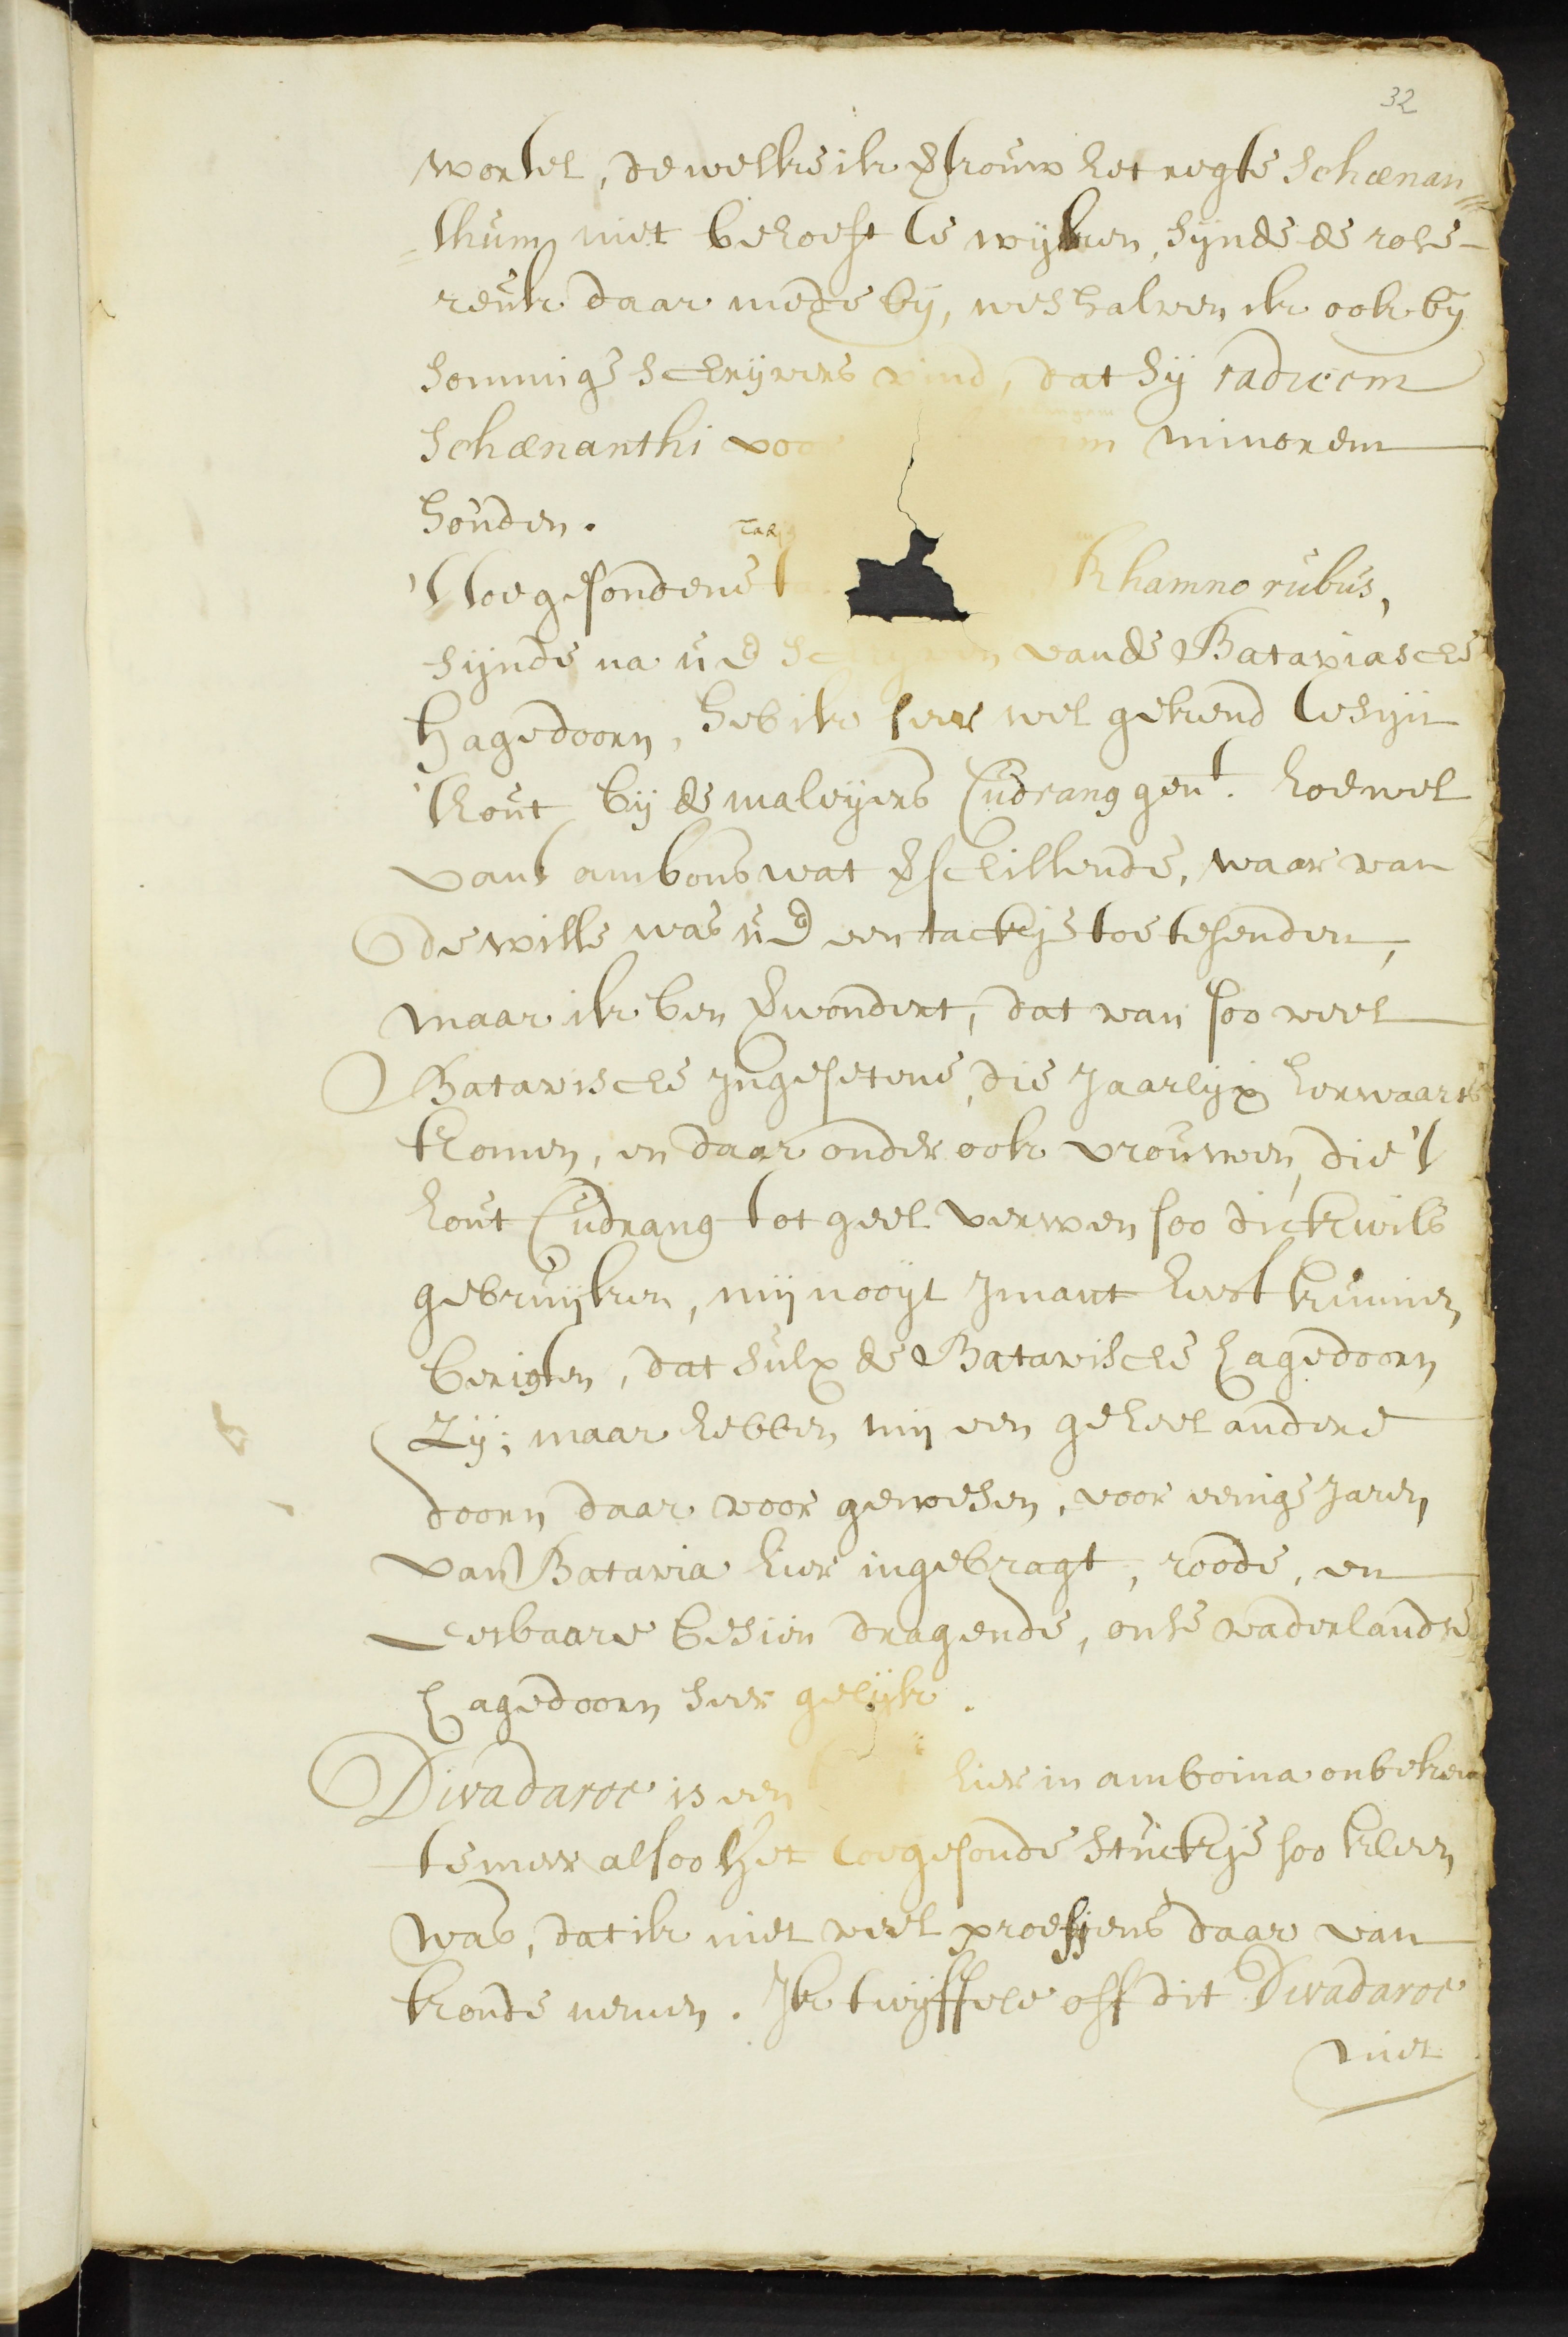 32
wortel, dewelke ik vtrouw het regte Schænan=
=thum niet behoeft te wijken, sijnde de rose-
reuk daar mede bij, weshalven ik ook bij
sommige schrijvers vind, dat sij radicem
Schænanthi voor minorem
houden.
't toegesondene Rhamno rubus,
sijnde na ue schrijven vande Bataviasche
Hagedoorn, heb ik seer wel gekend te sijn
't hout bij de maleijers Cudrang gent. hoewel
vant ambons wat vschillende, waar van
de wille was ue een tackje toe te senden,
maar ik ben vwondert, dat van soo veel
Batavische Ingesetene, die Jaarlijx herwaarts
komen, en daar onder ook vrouwen, die 't
hout Cudrang tot geel verwen soo dickwils
gebruijken, mij nooijt Imant heeft kunnen
berigten, dat sulx de Batavische hagedoorn
Zij; maar hebben mij een geheel andere
doorn daar voor gewesen, voor eenige Jaren
van Batavia hier ingebragt, roode, en
eetbaare besien dragende, onse vaderlandse
hagedoorn seer gelijk.
Divadaroe is een hier in amboina onbeken
te meer alsoo het toegesonde stuckje soo kleen
was, dat ik niet veel proefjens daar van
konde nemen. Ik twijffele off dit Divadaroe
niet